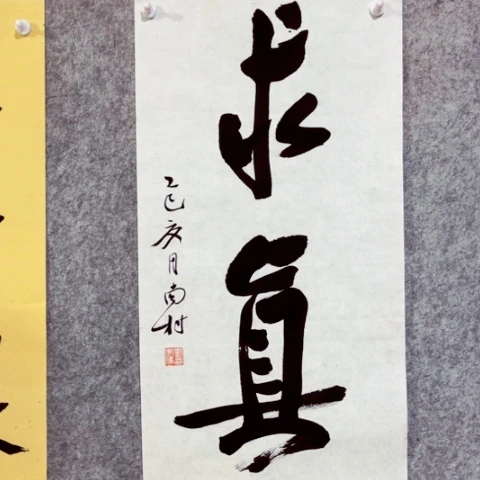 求真
乙巳亥月南村